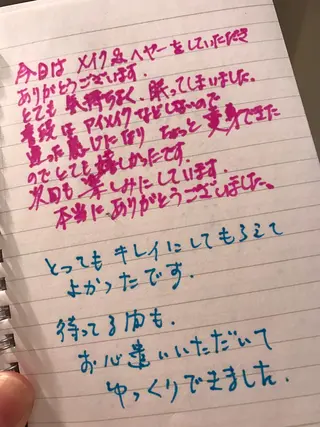 今日は メイク&ヘヤーをしていただき
ありがとうございます.
とても 気持ちよく、眠ってしまいました。
普段は アイメイクなどしないので
違った感じになり ちょっと変身できた
のでとても嬉しかったです.
次回も 楽しみにしています.
本当に ありがとうございました。
とっても キレイにしてもらえて
よかったです.
待ってる間も.
お心遣いいただいて
ゆっくりできました.